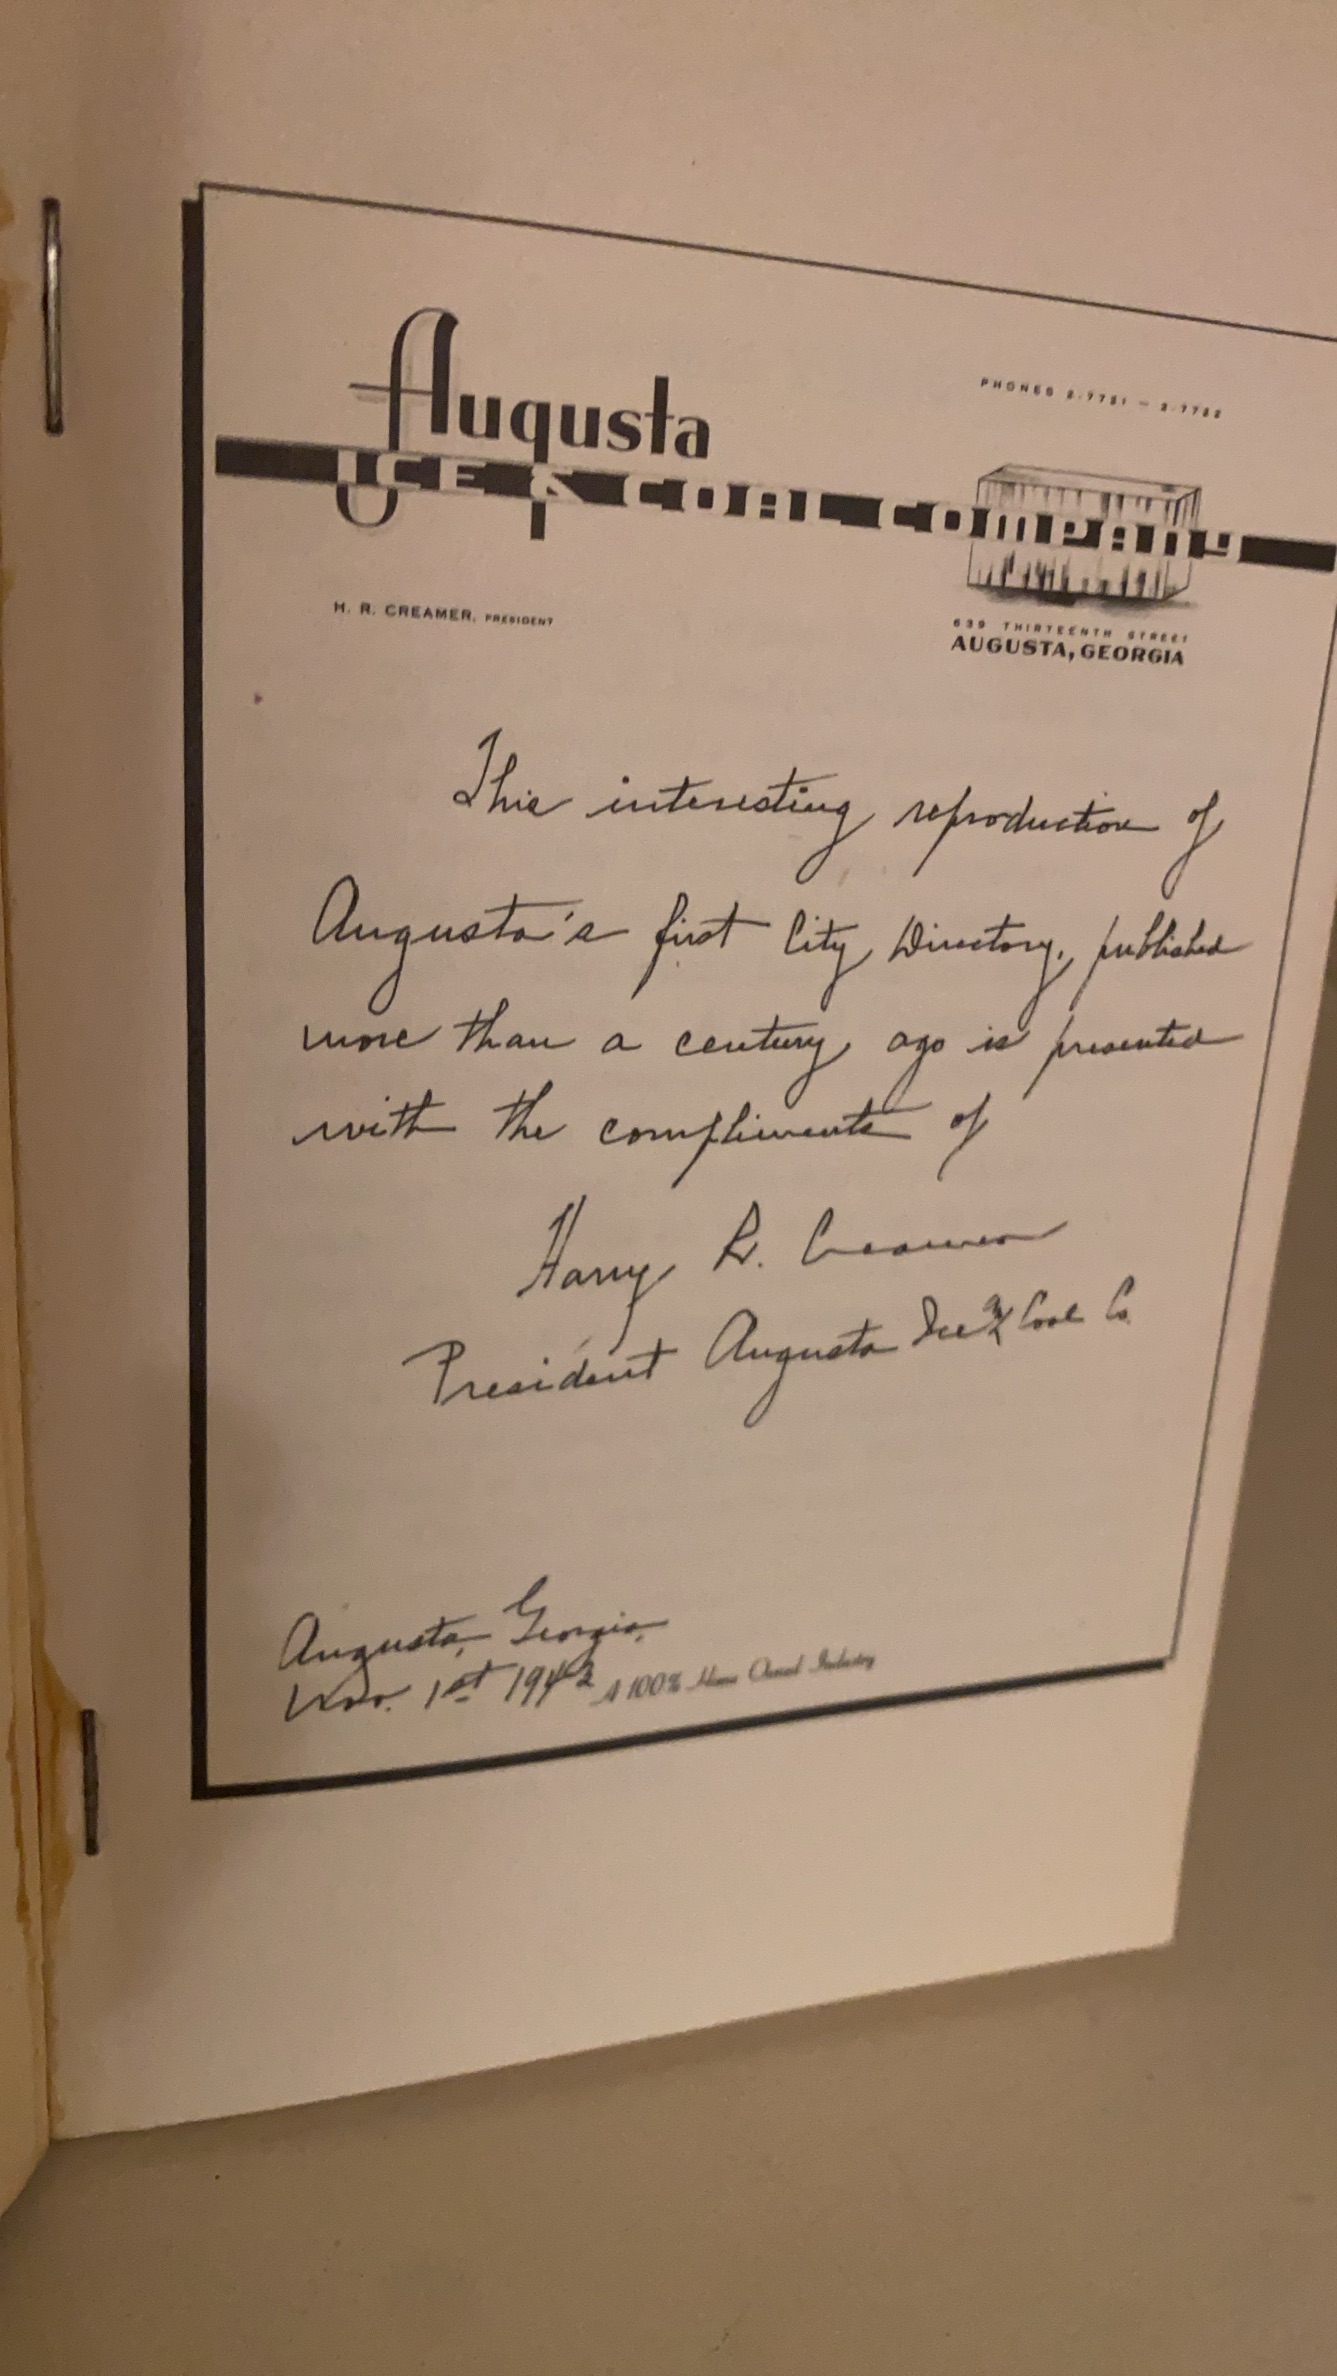 Augusta
PHONES 2-7781 — 2-7782
ICE & COAL COMPANY
H. R. CREAMER, PRESIDENT
639 THIRTEENTH STREET
AUGUSTA, GEORGIA
This interesting reproduction of
Augusta's first City Directory, published
more than a century ago is presented
with the compliments of
Harry R. Creamer
President Augusta Ice & Coal Co.
Augusta, Georgia,
Nov. 1st 1942
A 100% Home Owned Industry